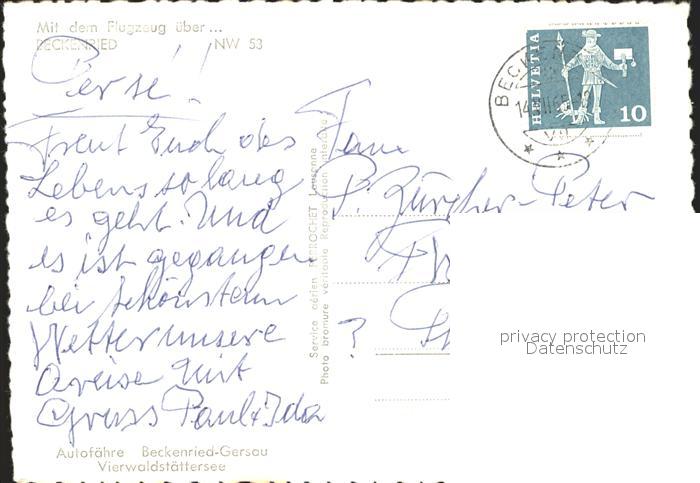 Mit dem Flugzeug über...
BECKENRIED NW 53
HELVETIA
10
BECKEN
Freut Euch des
Lebens so lang
es geht. Und
es ist gegangen
bei schönstem
Wetter unsere
mit
Gruss Paul + Ida
Fam
P. Zürcher-Peter
?
Service aérien PERROCHET Lausanne
Photo bromure véritable Reproduction interdite
privacy protection
Datenschutz
Autofähre Beckenried-Gersau
Vierwaldstättersee